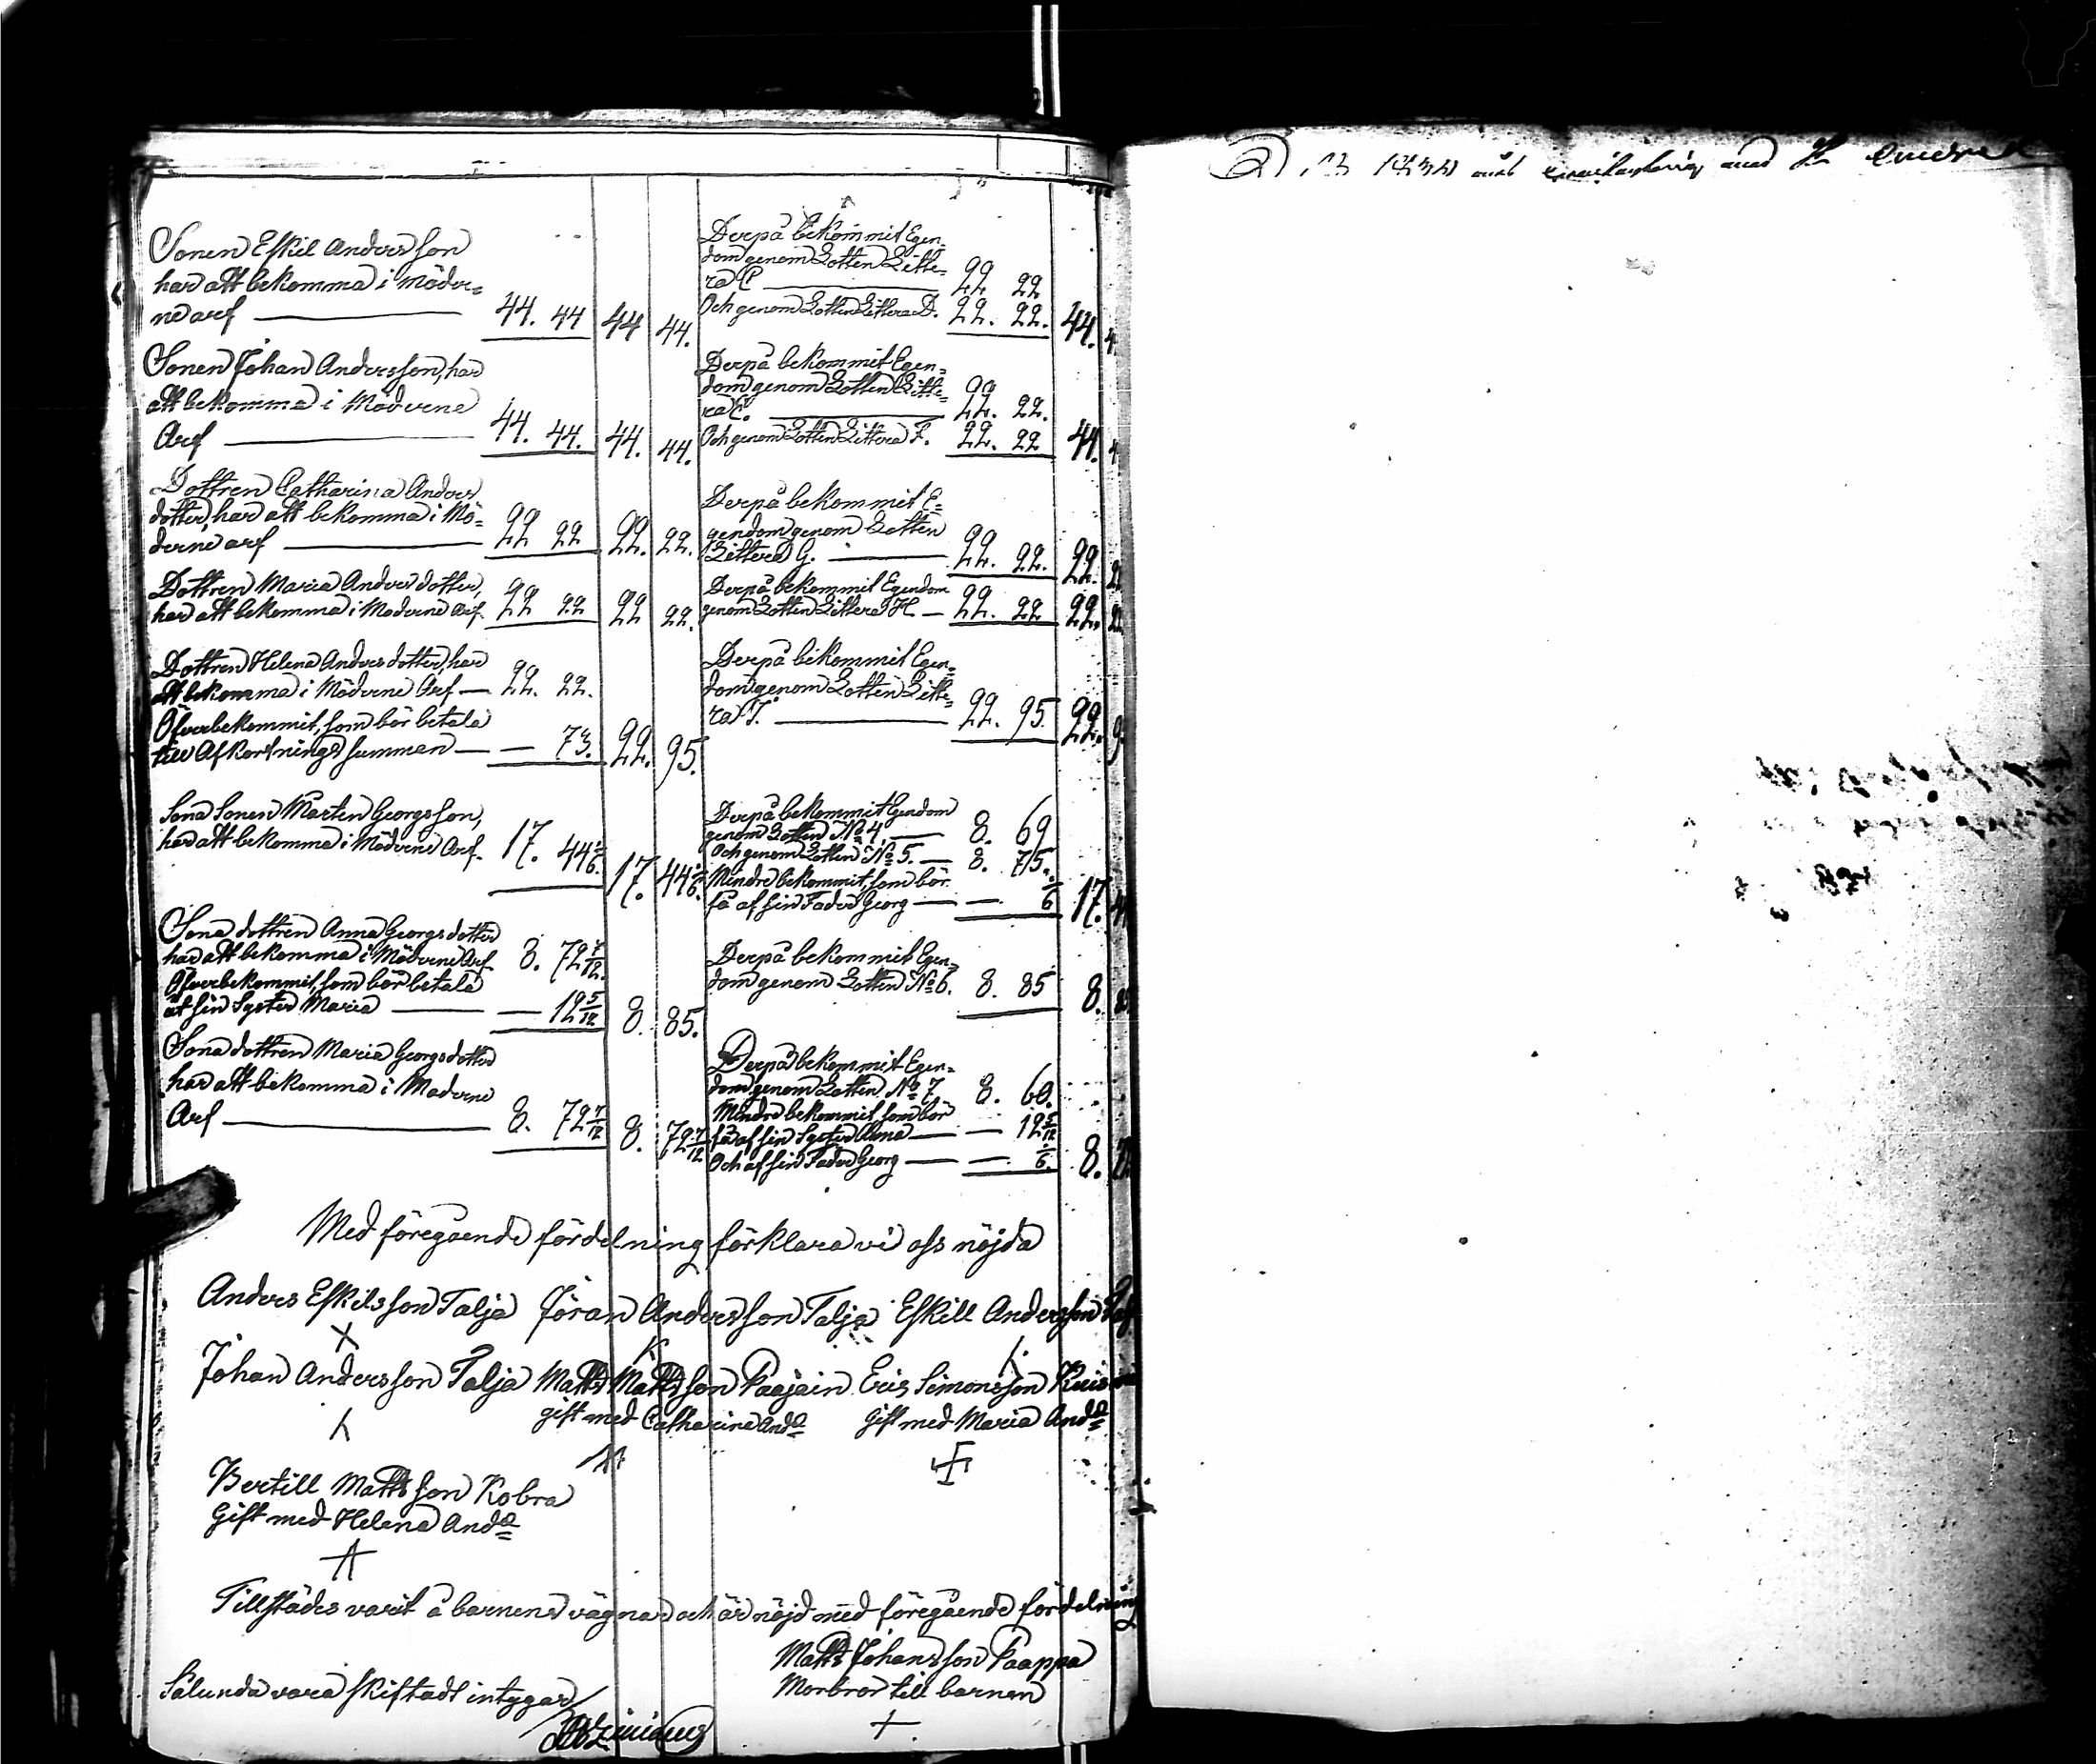 Sonen Eskil Andersson
har att bekomma i möder-
ne arf — 44. 44 | 44 | 44.
Derpå bekommit Egen-
dom genom Lotten Litte-
ra C — 22 22
Och genom Lotten Littera D. 22. 22. | 44.
Sonen Johan Andersson, har
att bekomma i Möderne
Arf — 44. 44. | 44. | 44.
Derpå bekommit Egen-
dom genom Lotten Litte-
ra E. — 22. 22.
Och genom Lotten Littera F. 22. 22 | 44.
Dottren Catharina Anders
dotter, har att bekomma i Mö-
derne arf — 22 22 | 22. | 22.
Derpå bekommit E-
gendom genom Lotten
Littera G. — 22. 22. | 22.
Dottren Maria Anders dotter,
har att bekomma i Moderne Arf. 22 22 | 22 | 22.
Derpå bekommit Egendom
genom Lotten Littera H — 22. 22 | 22.
Dottren Helena Anders dotter, har
att bekomma i Möderne Arf — 22. 22.
Öfverbekommit, som bör betala
till Afkortnings summan — — 73. | 22. | 95.
Derpå bekommit Egen-
dom genom Lotten Litte-
ra I. — 22. 95. | 22.
Sona Sonen Mårten Georgsson,
har att bekomma i Möderne Arf. 17. 44 1/6. | 17. | 44 1/6.
Derpå bekommit Egendom
genom Lotten No 4 — 8. 69
Och genom Lotten No 5. — 8. 75.
Mindre bekommit, som bör
få af sin Fader Georg — — 1/6 | 17.
Sona dottren Anna Georgs dotter
har att bekomma i Möderne Arf. 8. 72 7/12.
Öfverbekommit, som bör betala
åt sin Syster Maria — — 12 5/12 | 8. | 85.
Derpå bekommit Egen-
dom genom Lotten No 6. 8. 85 | 8.
Sona dottren Maria Georgs dotter
har att bekomma i Moderne
Arf — 8. 72 7/12 | 8. | 72 7/12
Derpå bekommit Egen-
dom genom Lotten No 7. 8. 60.
Mindre bekommit, som bör
få af sin Syster Anna — — 12 5/12
Och af sin Fader Georg — — 1/6. | 8.
Med föregående fördelning förklara vi oss nöjda
Anders Eskilsson Talja Jöran Andersson Talja Eskill Andersson
Johan Andersson Talja Matts Mattsson Paajain Eric Simonsson
gift med Catharina Anda Gift med Maria Anda
Bertill Mattsson Kobra
Gift med Helena Anda
Tillstädes varit å barnens vägnar och är nöjd med föregående fördelning
Matts Johansson Paappa
Morbror till barnen
Sålunda vara skiftadt intygar